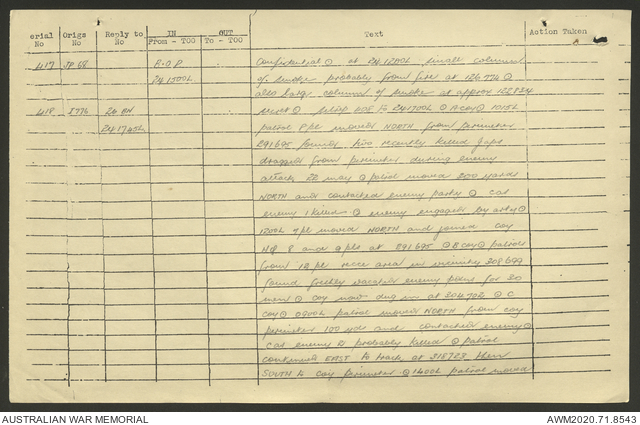 erial No Origs No Reply to No IN From - TOO OUT To - TOO Text Action Taken
417 A.O.P Confidential at 24.1200L small column
24.1500L of smoke probably from fire at 126774
also large column of smoke at approx 122824
418 I776 26 BN secret to 241700L A coy
241740L patrol 8 pl moved NORTH from perimeter
291695 found two recently killed japs
dragged from perimeter during enemy
attack 22 may patrol moved 200 yards
NORTH and contacted enemy party cas
enemy 1 killed enemy engaged by arty
1200L 9 pl moved NORTH and joined coy
HQ 8 and 9 pls at 291695 B coy patrol
from 12 pl recce area in vicinity 308699
found freshly vacated enemy posns for 20
men coy now dug in at 304702 C
coy 0900L patrol moved NORTH from coy
perimeter 100 yds and contacted enemy
cas enemy 2 probably killed patrol
continued EAST to track at 318723 then
SOUTH to coy perimeter 1400L patrol moved
AUSTRALIAN WAR MEMORIAL AWM2020.71.8543